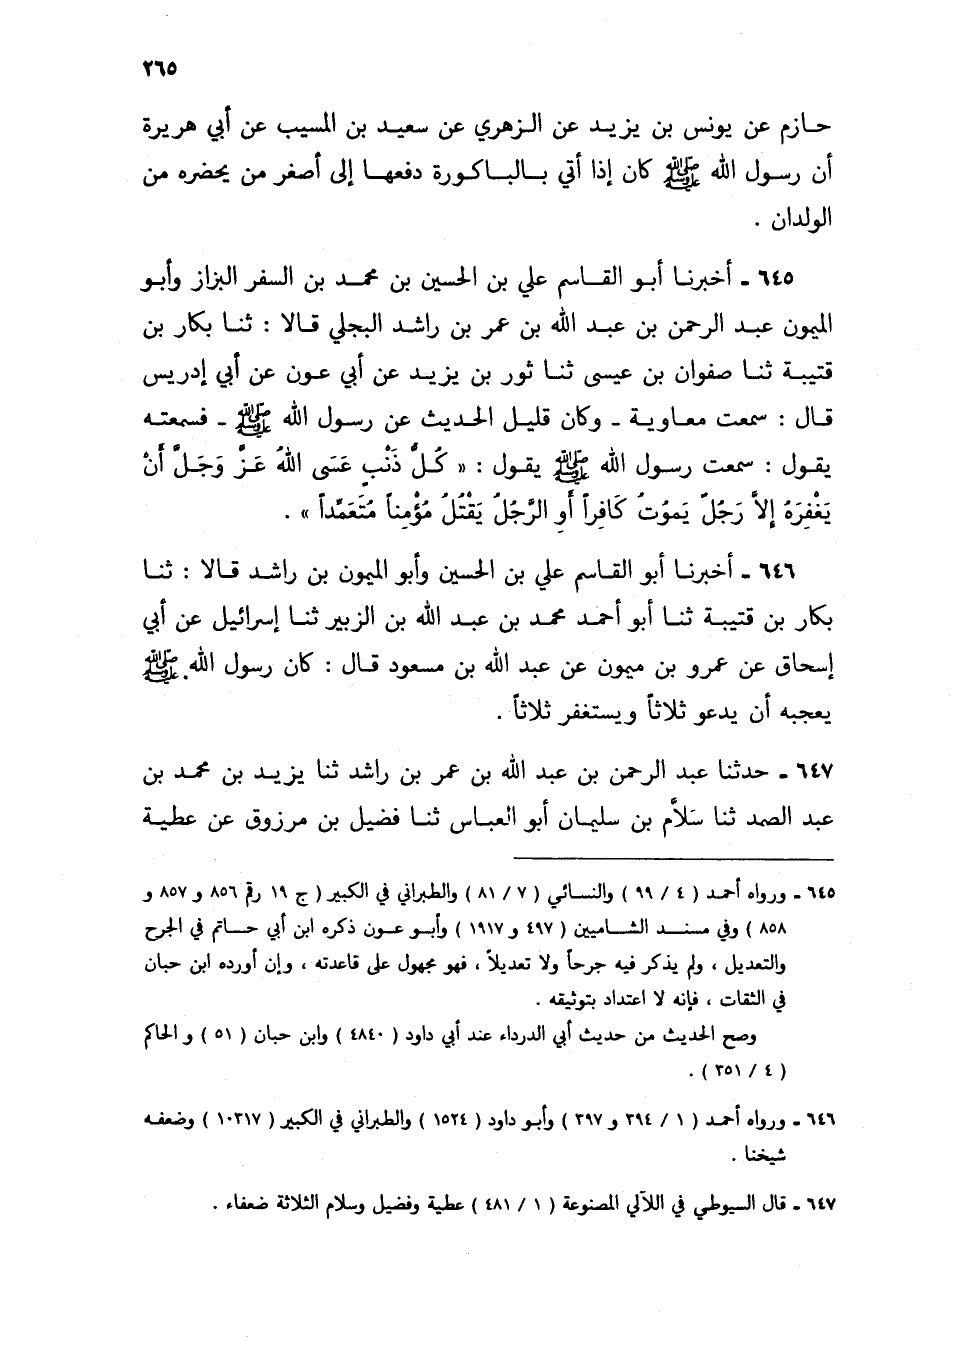 ٢٦٥
حازم عن يونس بن يزيد عن الزهري عن سعيد بن المسيب عن أبي هريرة
أن رسول الله ﷺ كان إذا أتي بالباكورة دفعها إلى أصغر من يحضره من
الولدان .
٦٤٥ ـ أخبرنا أبو القاسم علي بن الحسين بن محمد بن السفر البزاز وأبو
الميمون عبد الرحمن بن عبد الله بن عمر بن راشد البجلي قالا : ثنا بكار بن
قتيبة ثنا صفوان بن عيسى ثنا ثور بن يزيد عن أبي عون عن أبي إدريس
قال : سمعت معاوية ـ وكان قليل الحديث عن رسول الله ﷺ ـ فسمعته
يقول : سمعت رسول الله ﷺ يقول : « كُلُّ ذَنْبٍ عَسَى اللهُ عَزَّ وَجَلَّ أَنْ
يَغْفِرَهُ إلاَّ رَجُلٌ يَموُتُ كَافِراً أَوِ الرَّجُلُ يَقْتُلُ مُؤْمِناً مُتَعَمِّداً » .
٦٤٦ ـ أخبرنا أبو القاسم علي بن الحسين وأبو الميمون بن راشد قالا : ثنا
بكار بن قتيبة ثنا أبو أحمد محمد بن عبد الله بن الزبير ثنا إسرائيل عن أبي
إسحاق عن عمرو بن ميمون عن عبد الله بن مسعود قال : كان رسول الله ﷺ
يعجبه أن يدعو ثلاثاً ويستغفر ثلاثاً .
٦٤٧ ـ حدثنا عبد الرحمن بن عبد الله بن عمر بن راشد ثنا يزيد بن محمد بن
عبد الصمد ثنا سَلاَّم بن سليمان أبو العباس ثنا فضيل بن مرزوق عن عطية
٦٤٥ ـ ورواه أحمد ( ٤ / ٩٩ ) والنسائي ( ٧ / ٨١ ) والطبراني في الكبير ( ج ١٩ رقم ٨٥٦ و ٨٥٧ و
٨٥٨ ) وفي مسند الشاميين ( ٤٩٧ و ١٩١٧ ) وأبو عون ذكره ابن أبي حاتم في الجرح
والتعديل ، ولم يذكر فيه جرحاً ولا تعديلاً ، فهو مجهول على قاعدته ، وإن أورده ابن حبان
في الثقات ، فإنه لا اعتداد بتوثيقه .
وصح الحديث من حديث أبي الدرداء عند أبي داود ( ٤٨٤٠ ) وابن حبان ( ٥١ ) و الحاكم
( ٤ / ٣٥١ ) .
٦٤٦ ـ ورواه أحمد ( ١ / ٣٩٤ و ٣٩٧ ) وأبو داود ( ١٥٢٤ ) والطبراني في الكبير ( ١٠٣١٧ ) وضعفه
شيخنا .
٦٤٧ ـ قال السيوطي في اللآلي المصنوعة ( ١ / ٤٨١ ) عطية وفضيل وسلام الثلاثة ضعفاء .